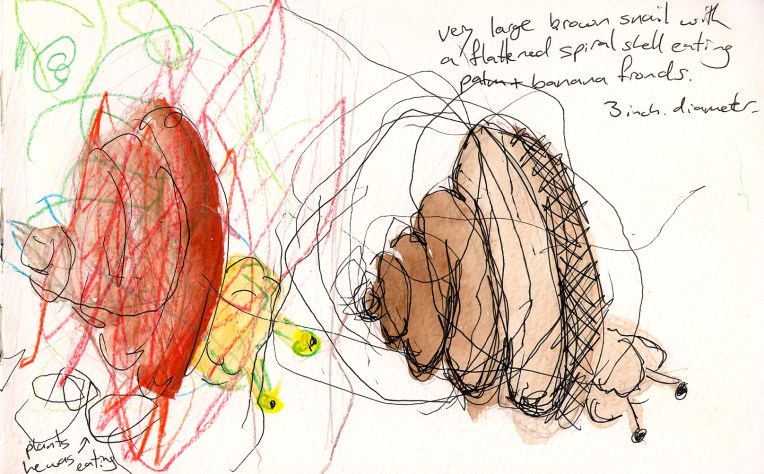 very large brown snail with
a flattened spiral shell eating
palm + banana fronds.
3 inch. diameter.
plants
he was eating